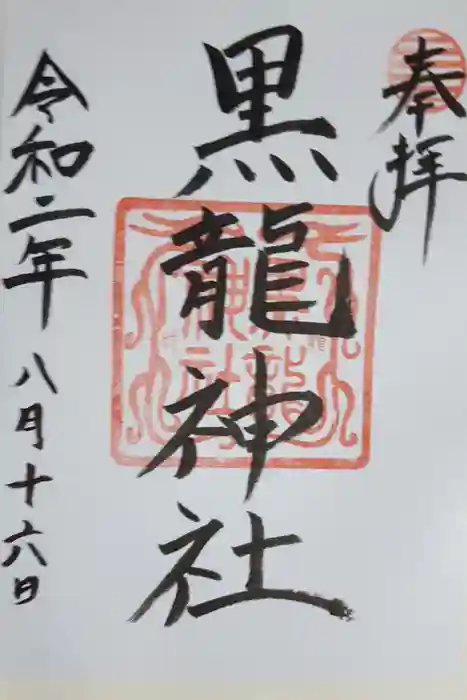 奉拝
黒龍神社
令和二年八月十六日